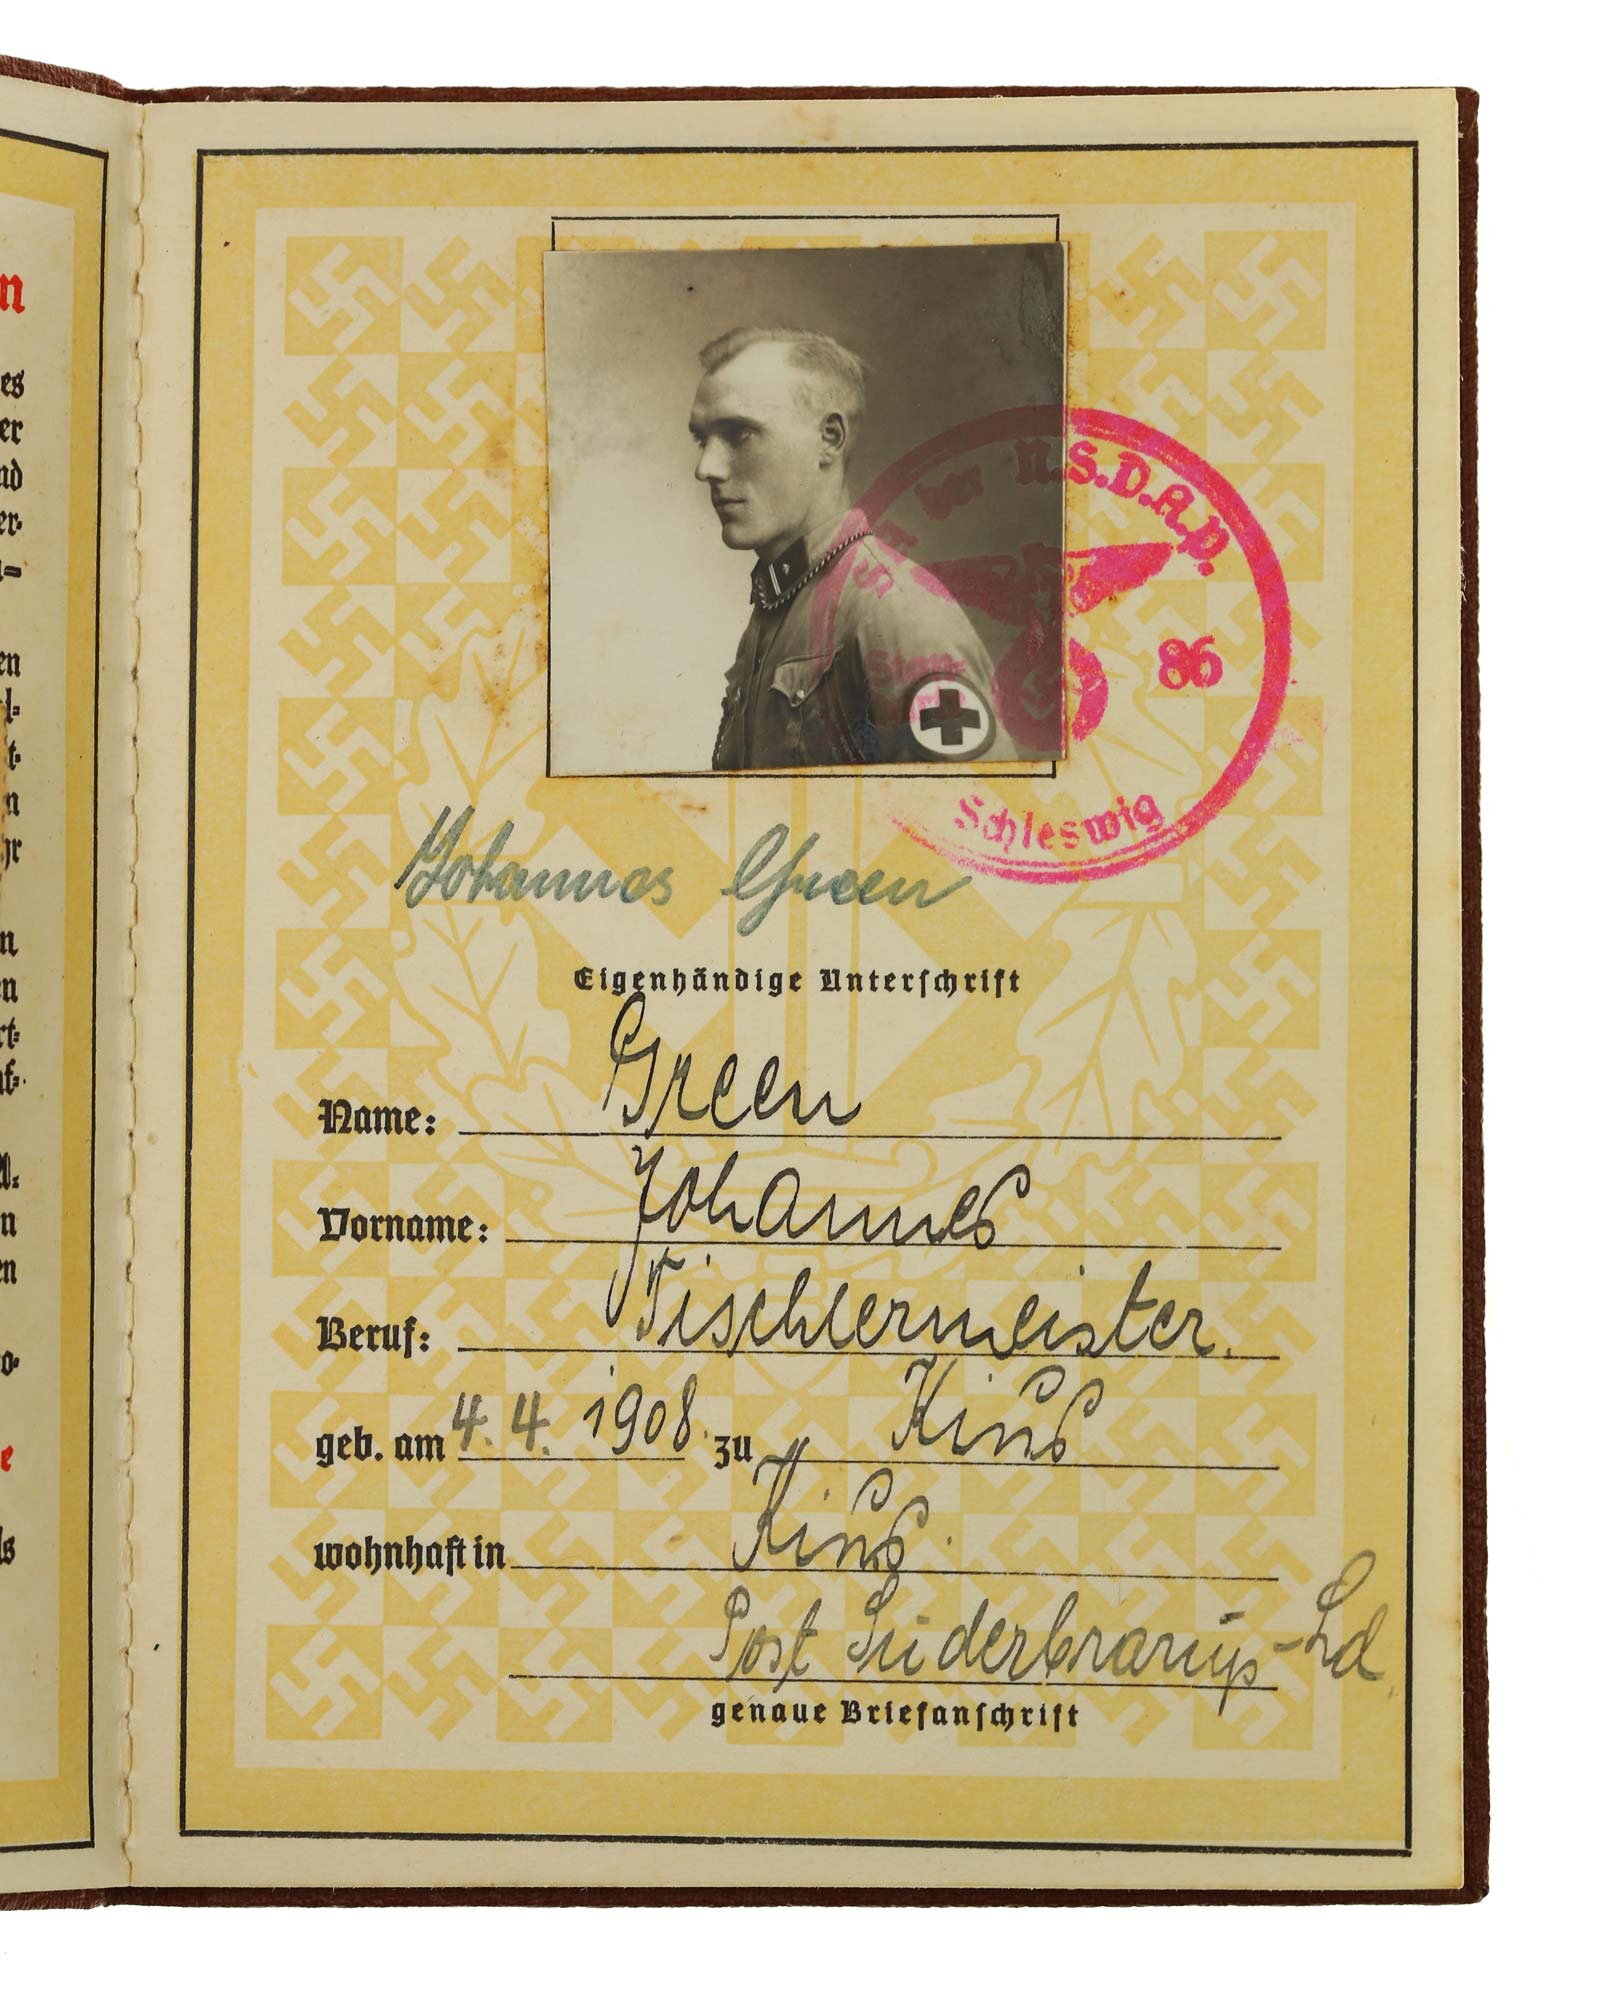 n
es
er
nd
er-
en
l-
t-
n
hr
n
en
rt-
n
en
o-
e
ls
S.A. der N.S.D.A.P.
86
Schleswig
Johannes Green
Eigenhändige Unterschrift
Name: Green
Vorname: Johannes
Beruf: Tischlermeister.
geb. am 4.4.1908. zu Kius
wohnhaft in Kius.
Post Süderbrarup-Ld
genaue Briefanschrift